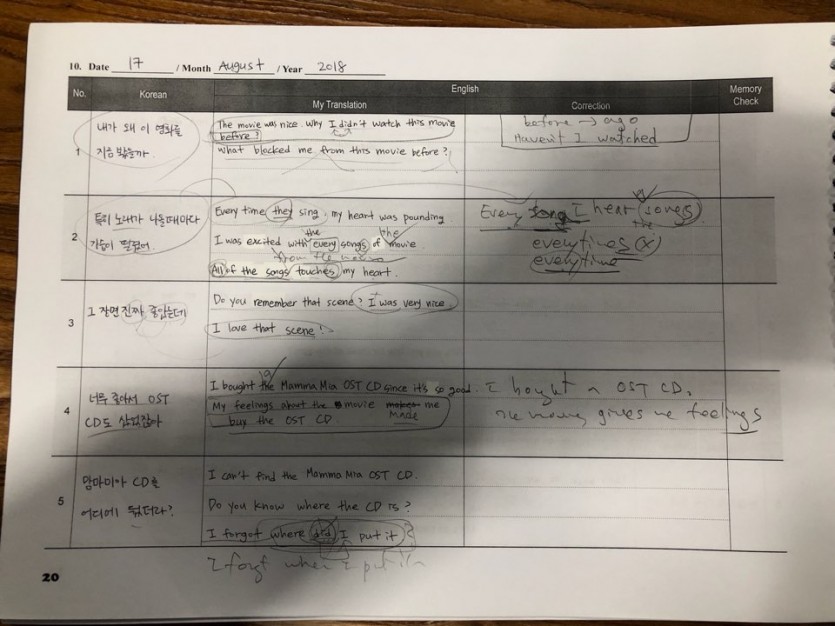 10. Date 17 / Month August / Year 2018
No. Korean English Memory Check
My Translation Correction
1
내가 왜 이 영화를
지금 봤을까
The movie was nice why I didn't watch this movie
before?
What blocked me from this movie before?
before → ago
Haven't I watched
2
특히 노래가 나올때마다
가슴이 떨렸어
Every time they sing, my heart was pounding
the the
I was excited with every songs of movie.
from the movie
All of the songs touches my heart.
Every song I hear songs
the
everytimes (x)
everytime
3
그 장면 진짜 좋았는데
Do you remember that scene? I was very nice
I love that scene!
4
너무 좋아서 OST
CD도 샀었잖아
I bought the Mamma Mia OST CD since it's so good.
My feelings about the movie makes me
made
buy the OST CD
I bought a OST CD.
The movie gives me feelings
5
맘마미아 CD를
어디에 뒀더라?
I can't find the Mamma Mia OST CD.
Do you know where the CD is?
I forgot where did I put it?
I forgt where I put it
20